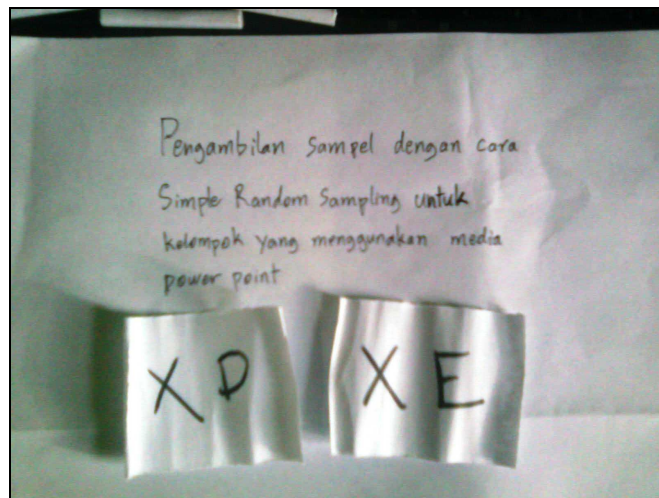 Pengambilan Sampel dengan cara
Simple Random Sampling untuk
kelompok yang menggunakan media
power point
XD XE